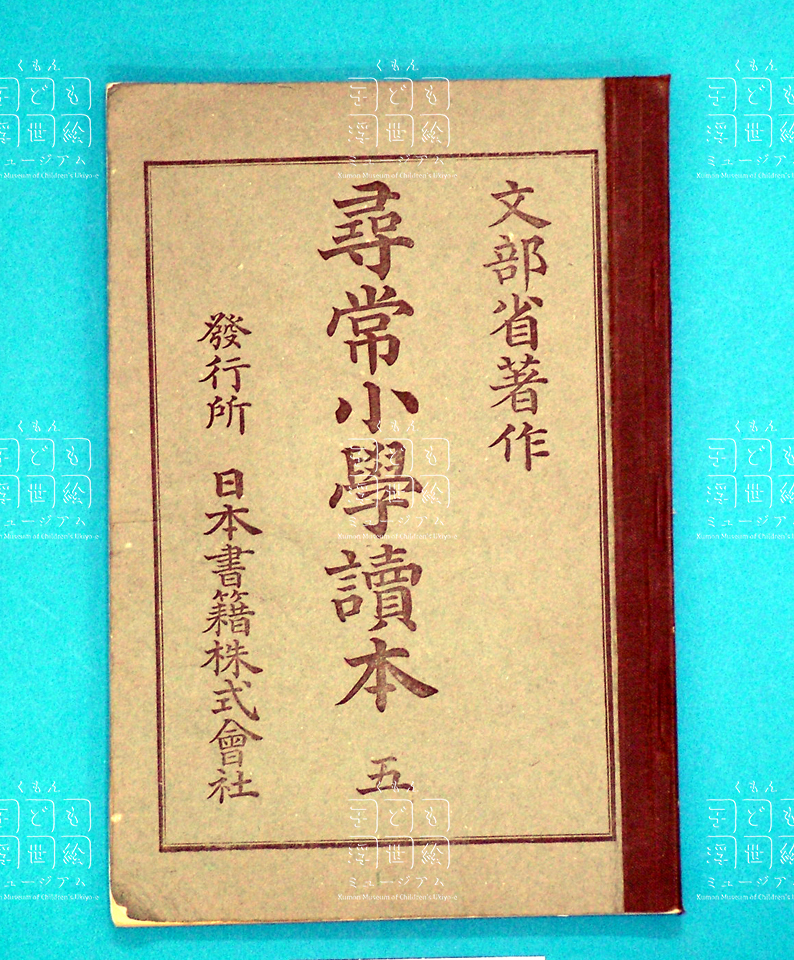 文部省著作
尋常小學讀本 五
發行所 日本書籍株式會社
くもん
子ども
浮世絵
ミュージアム
Kumon Museum of Children's Ukiyo-e